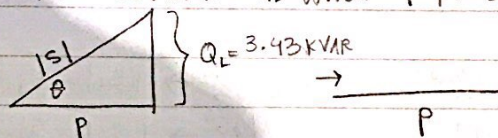 |S|
θ
P
Q_L = 3.43 KVAR
→
P